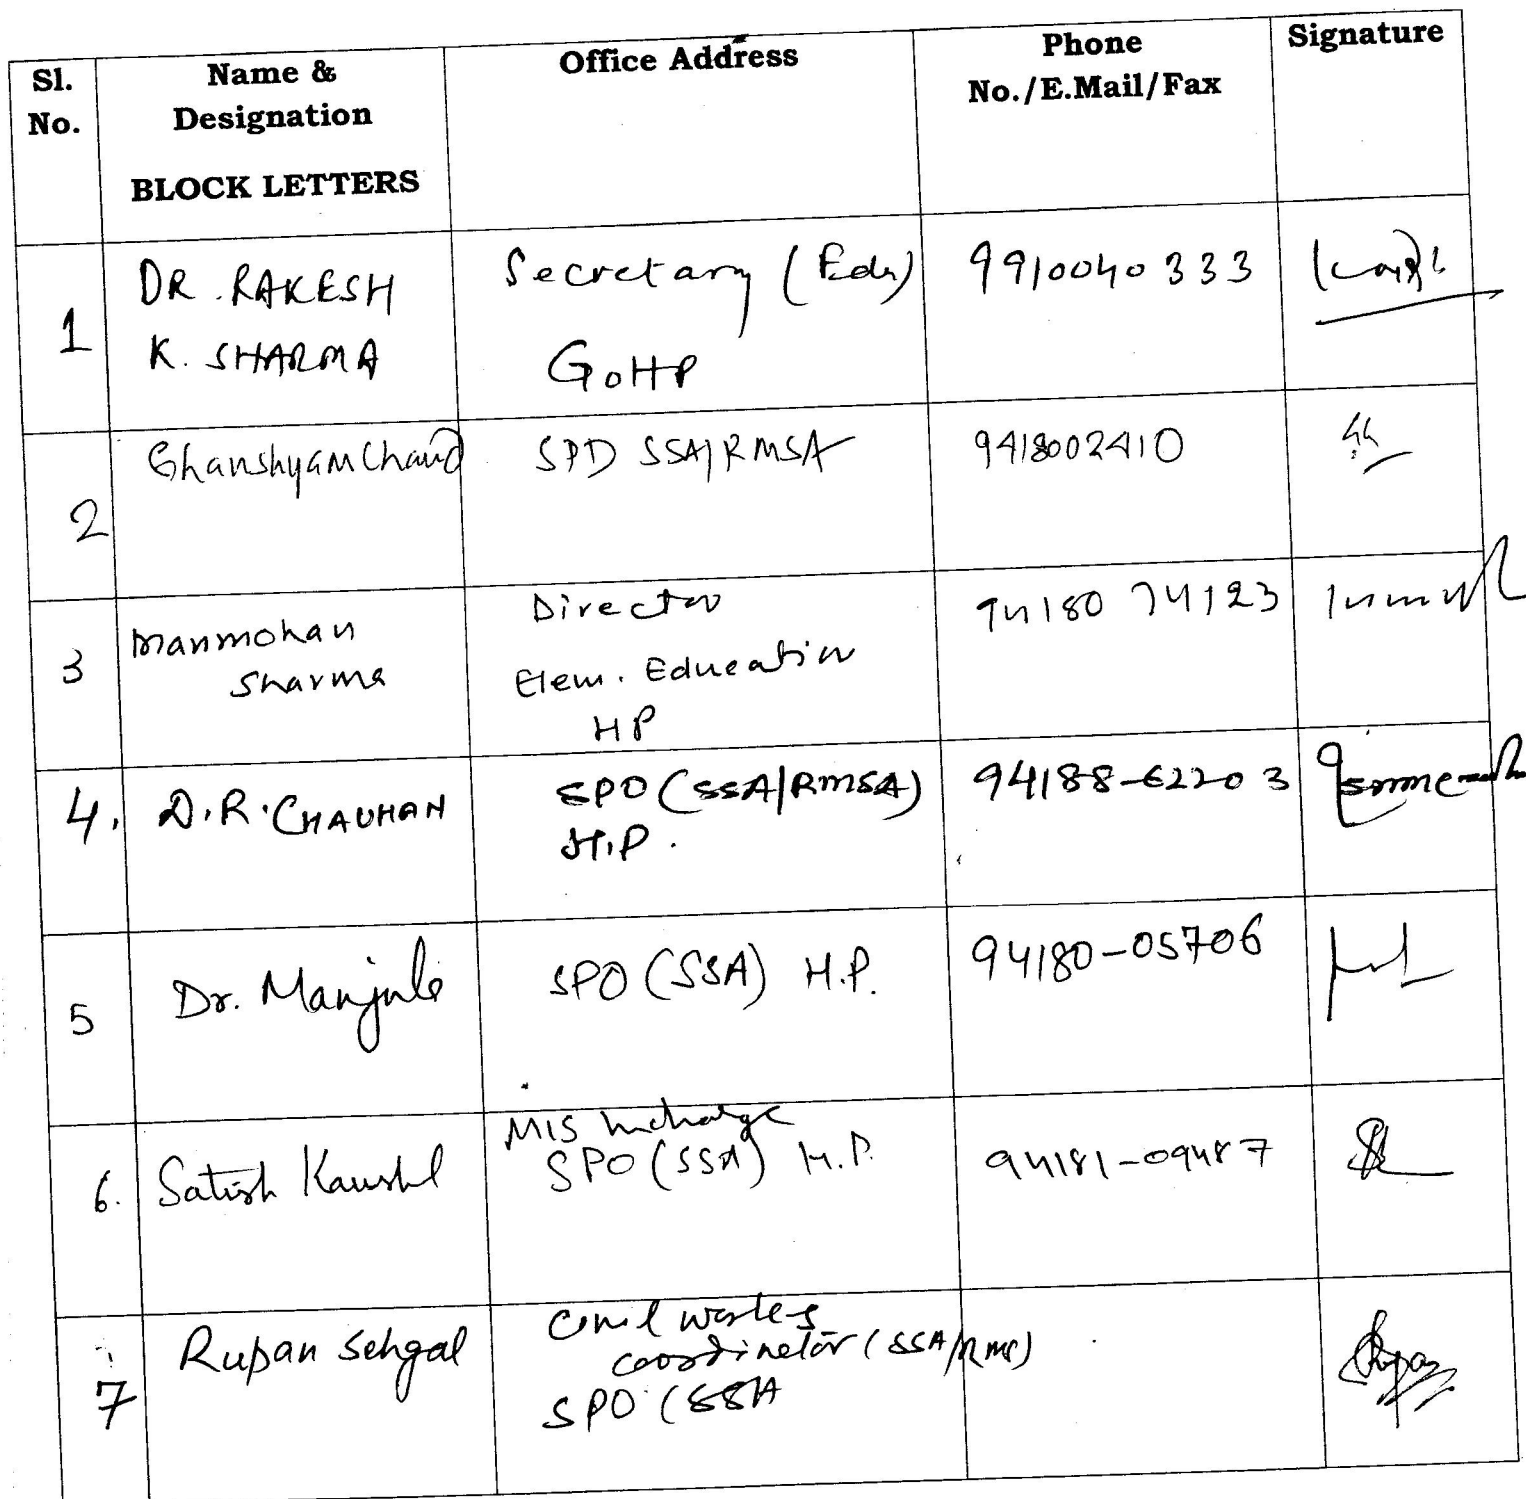 Sl.
No.
Name &
Designation
BLOCK LETTERS
Office Address
Phone
No./E.Mail/Fax
Signature
1
DR. RAKESH
K. SHARMA
Secretary (Edn)
GoHP
9910040333
2
Ghanshyam Chand
SPD SSA/RMSA
9418002410
3
Manmohan
Sharma
Director
Elem. Education
HP
94180 74123
4.
D.R. CHAUHAN
SPO (SSA/RMSA)
H.P.
94188-62203
5
Dr. Manjula
SPO (SSA) H.P.
94180-05706
6.
Satish Kaushal
MIS Incharge
SPO (SSA) H.P.
94181-09487
7
Rupan Sehgal
Civil works
coordinator (SSA/RMS)
SPO (SSA